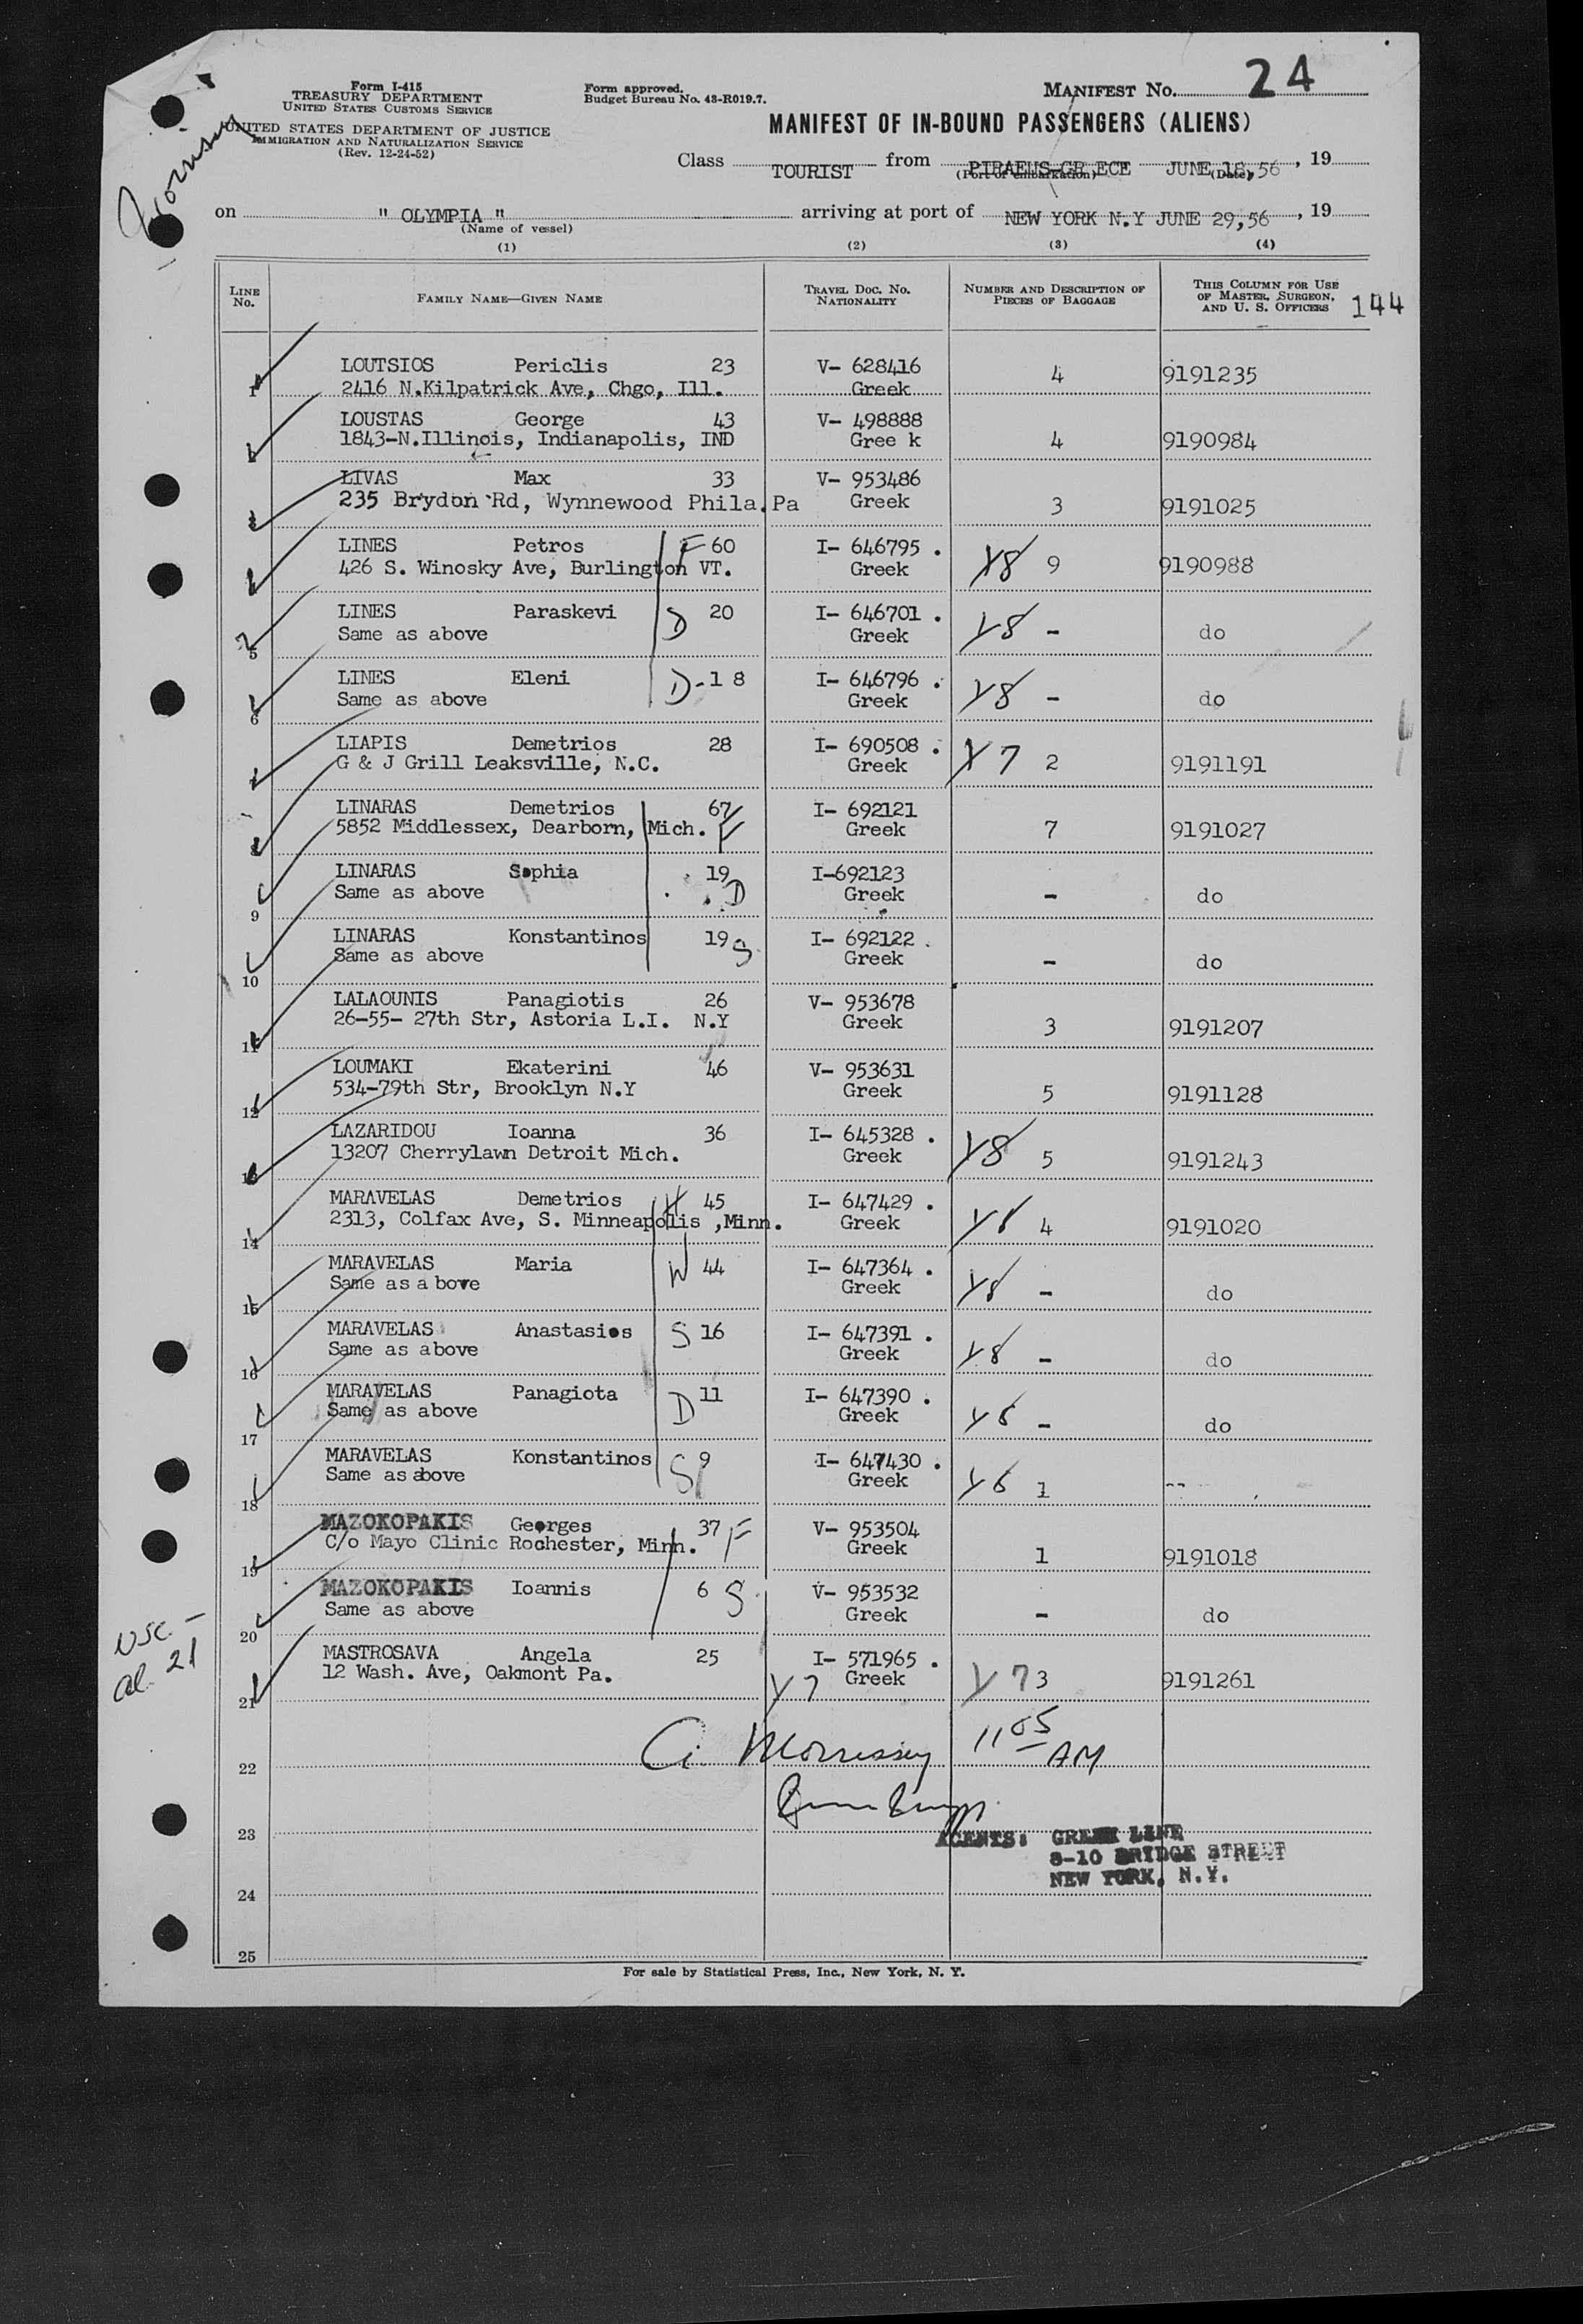 Form I-415
TREASURY DEPARTMENT
UNITED STATES CUSTOMS SERVICE
UNITED STATES DEPARTMENT OF JUSTICE
IMMIGRATION AND NATURALIZATION SERVICE
(Rev. 12-24-52)
Form approved.
Budget Bureau No. 43-R019.7.
MANIFEST No. 24
MANIFEST OF IN-BOUND PASSENGERS (ALIENS)
Class TOURIST from PIRAEUS GR ECE JUNE 18,56, 19
(Port of embarkation) (Date)
on " OLYMPIA " arriving at port of NEW YORK N.Y JUNE 29,56, 19
(Name of vessel)
(1) (2) (3) (4)
LINE No. FAMILY NAME—GIVEN NAME TRAVEL DOC. No. NATIONALITY NUMBER AND DESCRIPTION OF PIECES OF BAGGAGE THIS COLUMN FOR USE OF MASTER, SURGEON, AND U. S. OFFICERS 144
LOUTSIOS Periclis 23 V- 628416 4 9191235
1 2416 N.Kilpatrick Ave, Chgo, Ill. Greek
LOUSTAS George 43 V- 498888
2 1843-N.Illinois, Indianapolis, IND Gree k 4 9190984
LIVAS Max 33 V- 953486
3 235 Brydon Rd, Wynnewood Phila.Pa Greek 3 9191025
LINES Petros F 60 I- 646795 .
4 426 S. Winosky Ave, Burlington VT. Greek Y8 9 9190988
LINES Paraskevi D 20 I- 646701 .
5 Same as above Greek Y8 - do
LINES Eleni D-1 8 I- 646796 .
6 Same as above Greek Y8 - do
LIAPIS Demetrios 28 I- 690508 .
7 G & J Grill Leaksville, N.C. Greek Y7 2 9191191
LINARAS Demetrios 67 F I- 692121
8 5852 Middlessex, Dearborn, Mich. Greek 7 9191027
LINARAS Sophia 19 D I-692123
9 Same as above Greek - do
LINARAS Konstantinos 19 S I- 692122 .
10 Same as above Greek - do
LALAOUNIS Panagiotis 26 V- 953678
11 26-55- 27th Str, Astoria L.I. N.Y Greek 3 9191207
LOUMAKI Ekaterini 46 V- 953631
12 534-79th Str, Brooklyn N.Y Greek 5 9191128
LAZARIDOU Ioanna 36 I- 645328 .
13 13207 Cherrylawn Detroit Mich. Greek Y8 5 9191243
MARAVELAS Demetrios H 45 I- 647429 .
14 2313, Colfax Ave, S. Minneapolis ,Minn. Greek Y8 4 9191020
MARAVELAS Maria W 44 I- 647364 .
15 Same as a bove Greek Y8 - do
MARAVELAS Anastasios S 16 I- 647391 .
16 Same as above Greek Y8 - do
MARAVELAS Panagiota D 11 I- 647390 .
17 Same as above Greek Y6 - do
MARAVELAS Konstantinos S 9 I- 647430 .
18 Same as above Greek Y6 1 --
MAZOKOPAKIS Georges 37 F V- 953504
19 C/o Mayo Clinic Rochester, Minn. Greek 1 9191018
MAZOKOPAKIS Ioannis 6 S V- 953532
20 Same as above Greek - do
USC -
al. 21
MASTROSAVA Angela 25 I- 571965 .
21 12 Wash. Ave, Oakmont Pa. Y7 Greek Y7 3 9191261
22 A. Morrissey 1105 AM
23
AGENTS: GREEK LINE
8-10 BRIDGE STREET
NEW YORK, N.Y.
24
25
For sale by Statistical Press, Inc., New York, N. Y.